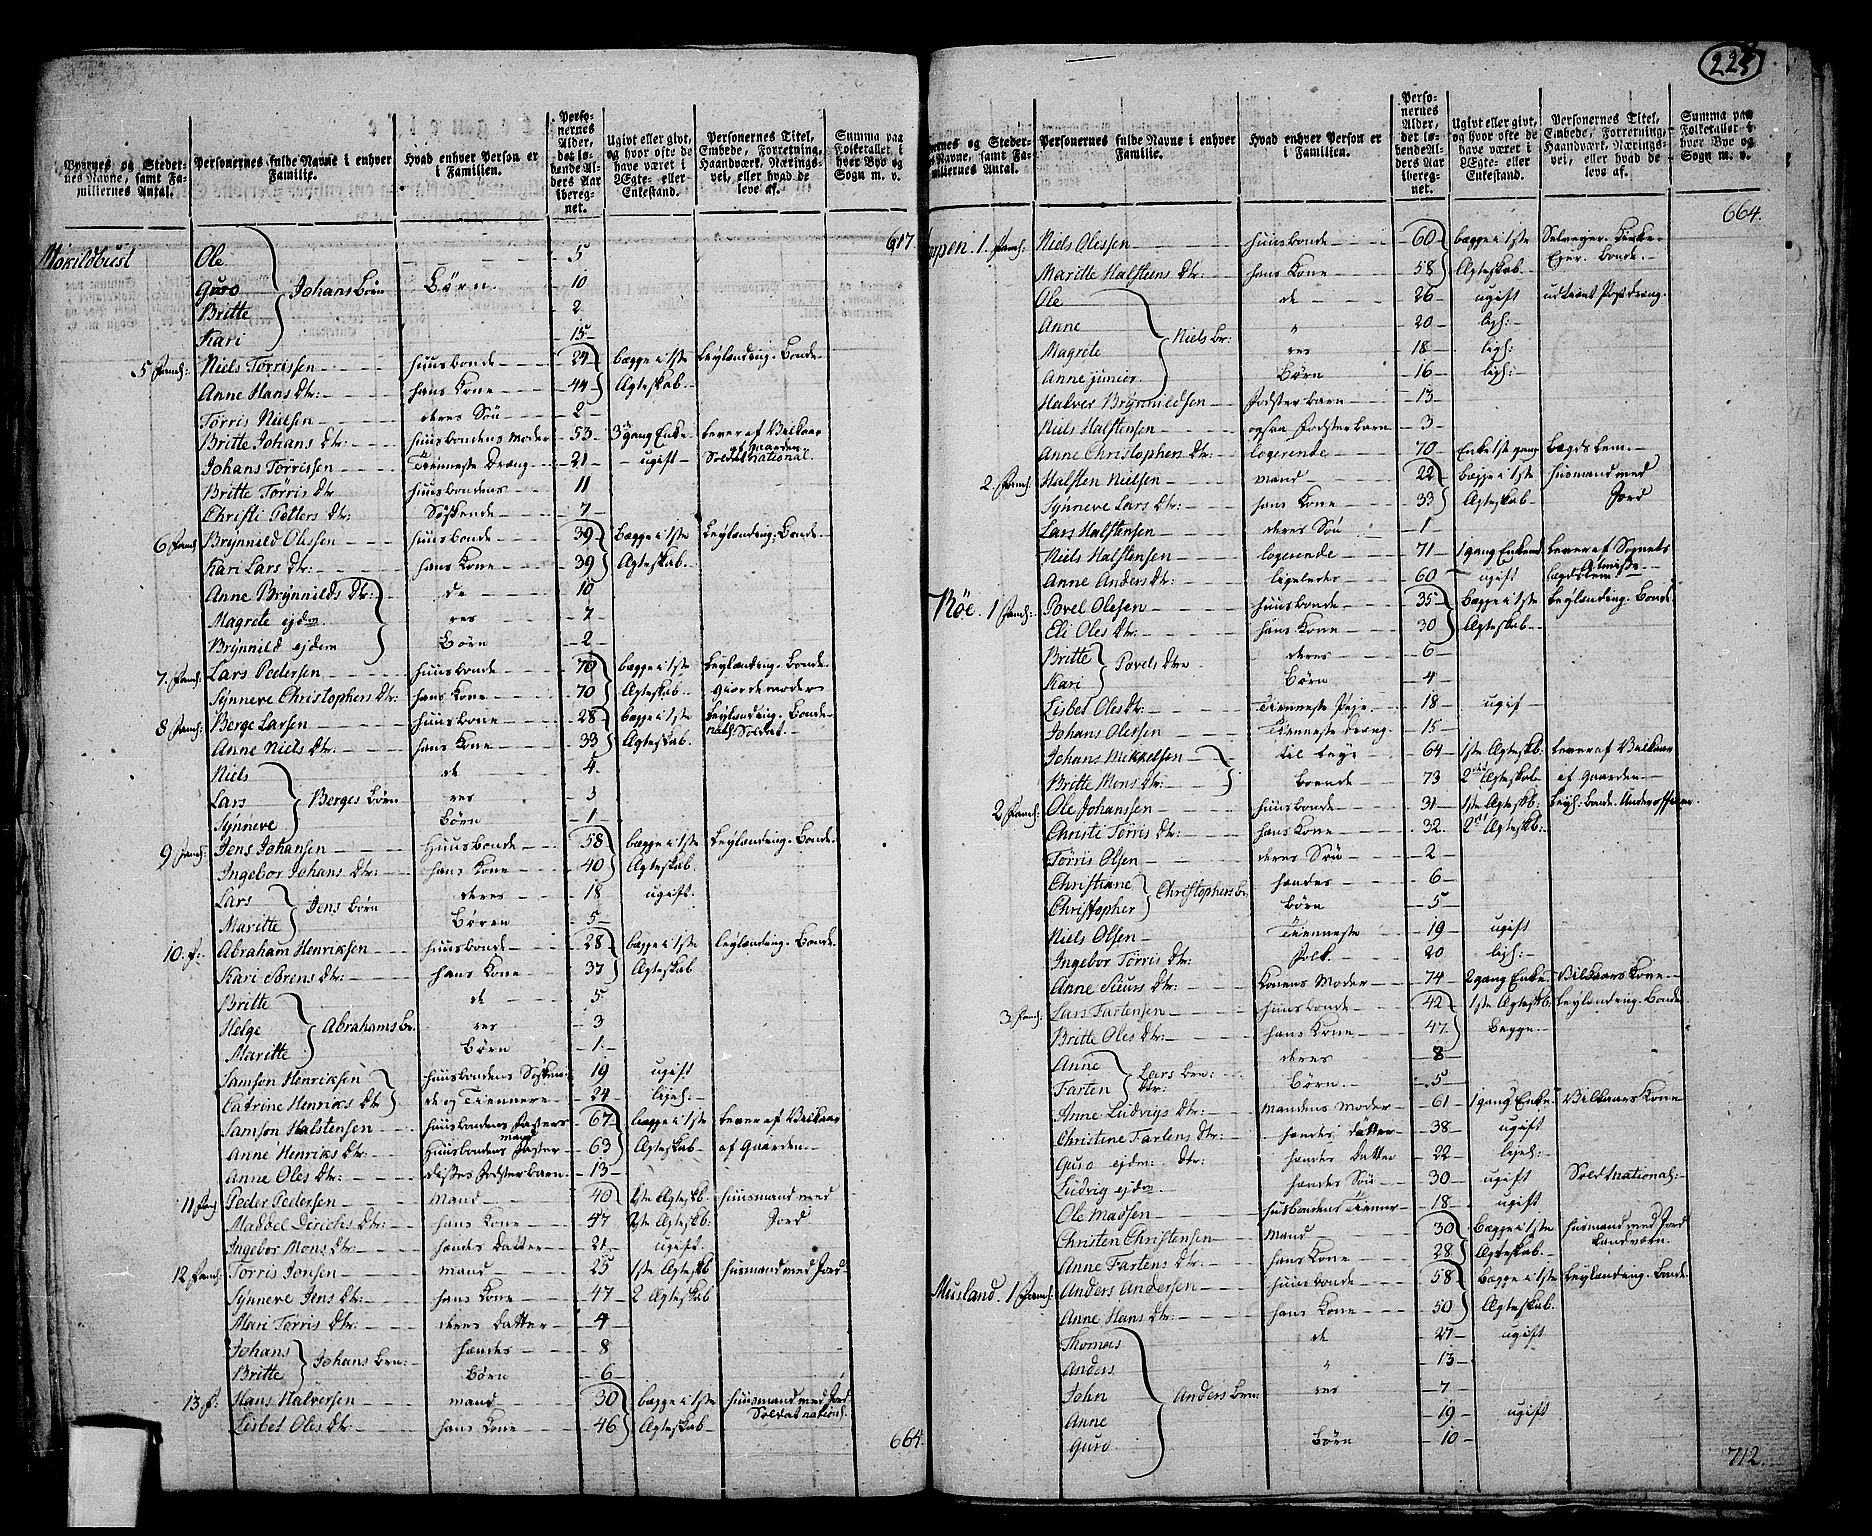 Byernes og Stedernes Navne, samt Familiernes Antal. | Personernes fulde Navne i enhver Familie. | Hvad enhver Person er i Familien. | Personernes Alder, det løbende Alders Aar iberegnet. | Ugivt eller givt, og hvor ofte de have været i Ægte- eller Enkestand. | Personernes Titel, Embede, Forretning, Haandværk, Næringsvei, eller hvad de leve af. | Summa paa Folketallet i hver Bye og Sogn m. v.
617
Mokildbust Ole 5
Guro Johans Børn Børn 10
Britte 2
Kari 15
5 Famil: Niels Tørrissen huusbonde 24 begge i 1ste Leylænding. Bonde
Anne Hans Dtr: hans Kone 44 Ægteskab.
Tørris Nielsen deres Søn 2
Britte Johans Dtr: huusbondens Moder 53 3 gang Enke Lever af Vilkaar af Gaarden
Johans Tørrissen Tienneste Dreng 21 ugift Soldat national.
Britte Tørris Dtr huusbondens 11
Christi Petters Dtr: Søskende 7
6 Famil Brynnild Olessen huusbonde 39 begge i 1ste Leylænding: Bonde
Kari Lars Dtr: hans Kone 39 Ægteskab.
Anne Brynnilds Dtr: de 10
Magrete ejdem res 7
Brynnild ejdem Børn 2
7. Famil: Lars Pedersen huusbonde 70 begge i 1ste Leylænding. Bonde
Synneve Christophers Dtr: hans Kone 70 Ægteskab. Giordemoder
8 Famil: Berge Larsen huusbone 28 begge i 1ste Leylænding. Bonde
Anne Niels Dtr: hans Kone 33 Ægteskab. natl: Soldat.
Niels de 4
Lars Berges Børn res 3
Synneve Børn 1
9 Famil: Jens Johansen Huusbonde 58 begge i 1ste Leylænding. Bonde
Ingebor Johans Dtr: hans Kone 40 Ægteskab
Lars Jens Børn deres 18 ugift.
Maritte Børen 5
10. f: Abraham Henriksen huusbonde 28 begge i 1ste Leylænding. Bonde
Kari Sørens Dtr: hans Kone 37 Ægteskab
Britte de 5
Helge Abrahams Br. res 3
Maritte Børn 1
Samson Henriksen huusbondens Søsken 19 ugift
Catrine Henriks Dtr de og Tiennere 24 ligel:
Samson Halstensen huusbondens Fasters mand 67 begge i 1ste Lever af Vilkaar
Anne Henriks Dtr: Huusbondens Faster 63 Ægteskab af Gaarden
Anne Oles Dtr: disses Fosterbarn 13
11 Fam Peder Pedersen mand 40 1ste Ægteskb. huusmand med
Maddel Dirichs Dtr: hans Kone 47 Ægteskb: Jord
Ingebor Mons Dtr: hendes Datter 21 ugift.
12 Famil: Torris Jonsen mand 25 1ste Ægteskb husmand med Jord
Synneve Jens Dtr: hans Kone 47 2 Ægteskab
Mari Torris Dtr: deres Datter 4
Johans Johans Brn: hendes 8
Britte Børn 6
13. f: Hans Halversen mand 30 begge i 1ste huusmand med Jord
Lisbet Oles Dtr: hans Kone 46 Ægteskab Soldat nationl.
664.
224
Byernes og Stedernes Navne, samt Familiernes Antal. | Personernes fulde Navne i enhver Familie. | Hvad enhver Person er i Familien. | Personernes Alder, det løbende Alders Aar iberegnet. | Ugivt eller givt, og hvor ofte de have været i Ægte- eller Enkestand. | Personernes Titel, Embede, Forretning, Haandværk, Næringsvei, eller hvad de leve af. | Summa paa Folketallet i hver Bye og Sogn m. v.
664.
1. Famil: Niels Olessen huusbonde 60 begge i 1ste Selveyer.
Maritte Halsteens Dtr: hans Kone 58 Ægteskab. Eyer. Bonde.
Ole de 26 ugift
Anne Niels Br: " 20 ligl:
Magrete res 18 ligl:
Anne junior Børn 16 ligl:
Halver Brynnildsen Fosterbarn 13
Niels Halstensen ogsaa Fosterbarn 3
Anne Christophers Dtr: logerende 70 Enke 1ste gang Lægdslem.
2. Famil: Halsten Nielsen mand 22 begge i 1ste husmand med
Synneve Lars Dtr: hans Kone 33 Ægteskab Jord
Lars Halstensen deres Søn 1
Niels Halstensen logerende 71 1 gang Enkemd Lever af Sognets Almisse
Anne Anders Dtr: ligeledes 60 ugift lægdslem
Røe. 1 Famil: Povel Olesen huusbonde 35 begge i 1ste Leylænding. Bonde
Eli Oles Dtr: hans Kone 30 Ægteskab
Britte Povels Dtre deres 6
Kari Børn 4
Lisbet Oles Dtr: Tienneste Peje 18 ugif
Johans Olessen Tienneste Dreng 15
Johans Mikkelsen til Leye 64 1ste Ægteskb: Lever af Vilkaar
Britte Mons Dtr: Boende 73 2det Ægteskab af Gaarden
2 Famil: Ole Johanssen huusbonde 31 1ste Ægteskb: Leyl: Bonde. Underofficer
Christi Torris Dtr: hans Kone 32. 2det Ægteskb:
Torris Olsen deres Søn 2
Christiane Christophers Br. hendes 6
Christopher Børn 5
Niels Olsen Tienneste 19 ugift
Ingebor Torris Dtr: Folk 20 ligl:
Anne Siurs Dtr: Konens Moder 74 2 gang Enke Vilkaars Kone
3 Famil: Lars Fartensen huusbonde 42 1ste Ægteskb: Leylænding. Bonde
Britte Oles Dtr: hans Kone 47 begge.
Anne Lars Brn: deres 8
Farten Dtr: Børn 5
Anne Ludvigs Dtr: mandens Moder 61 1 gang Enke Vilkaars Kone
Christine Fartens Dtr: hendes Datter 38 ugift
Guro ejdm: Dtr: hendes Datter 22 ligel:
Ludvig ejdm hendes Søn 30 ugift Sold: national:
Ole Madsen husbondens Tienner 18 ugift
Christen Christensen mand 30 begge i 1ste husmand med Jord
Anne Fartens Dtr: hans Kone 28 Ægteskab. Landværn.
Musland. 1 Famil: Anders Andersen huusbonde 58 begge i 1ste Leylænding. Bonde
Anne Hans Dtr: hans Kone 50 Ægteskab.
Thomas de 27 ugift
Anders " 13
John Anders Brn: res 7
Anne 19 ugift
Guro Børn 10
712.